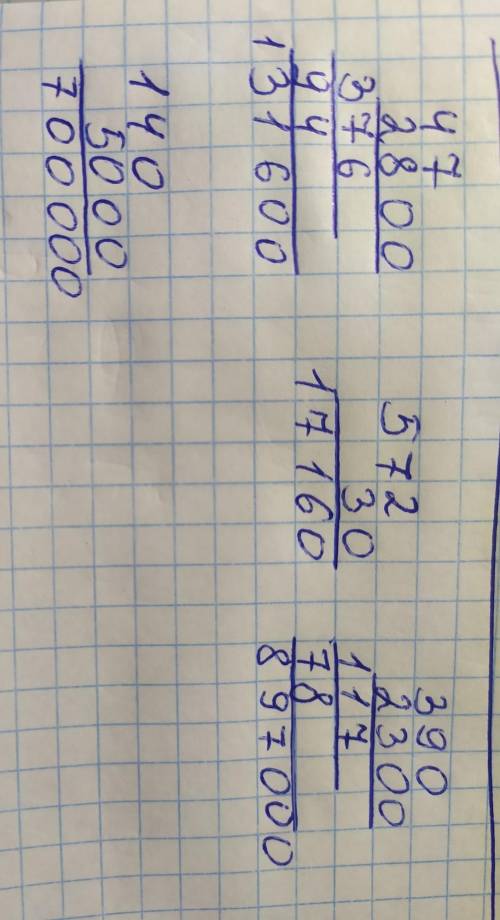 47
2800
376
94
131600
572
30
17160
390
2300
117
78
897000
140
5000
700000